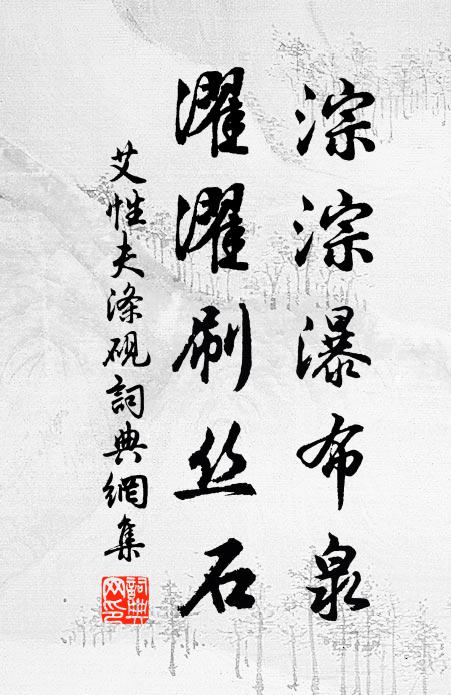 淙淙瀑布泉
濯濯刷丝石
艾性夫滌硯詞典網集
詞典网印